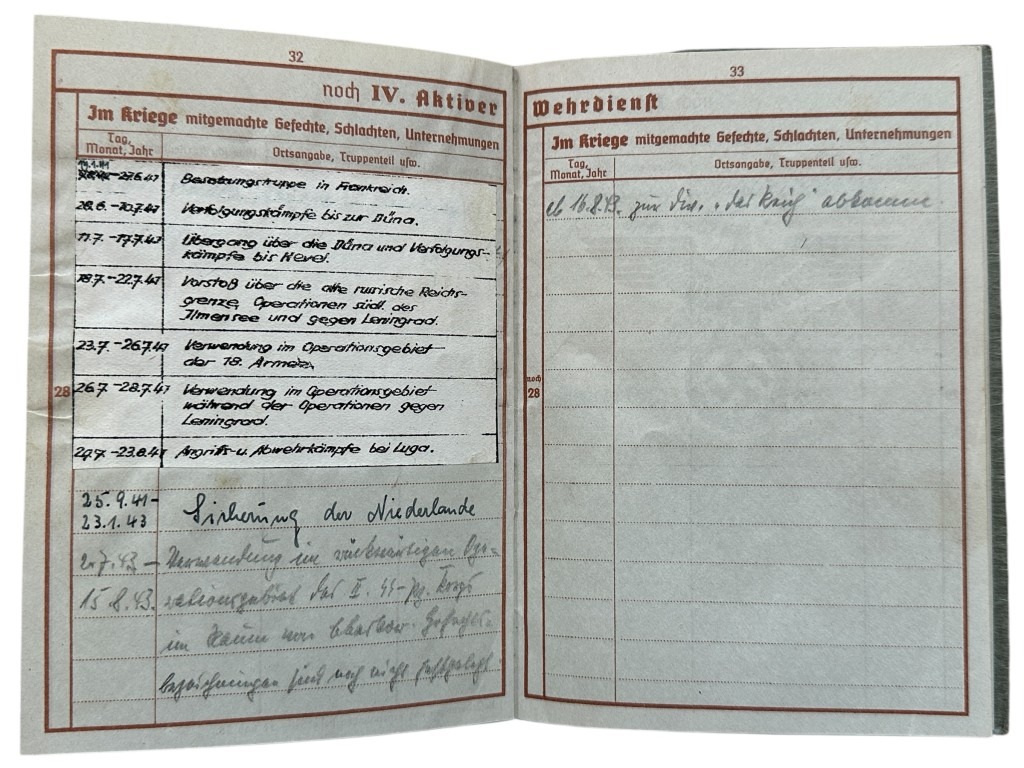 32
noch IV. Aktiver
Im Kriege mitgemachte Gefechte, Schlachten, Unternehmungen
Tag, Monat, Jahr
Ortsangabe, Truppenteil usw.
-27.6.41 Besatzungstruppe in Frankreich.
28.6. -10.7.41 Verfolgungskämpfe bis zur Düna.
11.7. -17.7.41 Übergang über die Düna und Verfolgungs-
kämpfe bis
18.7. -22.7.41 Vorstoß über die alte russische Reichs-
grenze, Operationen südl. des
Ilmensee und gegen Leningrad.
23.7. -26.7.41 Verwendung im Operationsgebiet
der 18. Armee.
28
26.7 -28.7.41 Verwendung im Operationsgebiet
während der Operationen gegen
Leningrad.
-23.8.41 Angriffs- u. Abwehrkämpfe bei Luga.
25.9.41-
23.1.43 Sicherung der Niederlande
2.7.43 — Verwendung im rückwärtigen Ope-
15.8.43. rationsgebiet des II. SS-Pz. Korps
im Raum von Charkow. Gefechts-
bezeichnungen sind noch nicht festgelegt.
33
Wehrdienst
Im Kriege mitgemachte Gefechte, Schlachten, Unternehmungen
Tag, Monat, Jahr
Ortsangabe, Truppenteil usw.
ab 16.8.43. zur Div. "das Reich"
noch
28